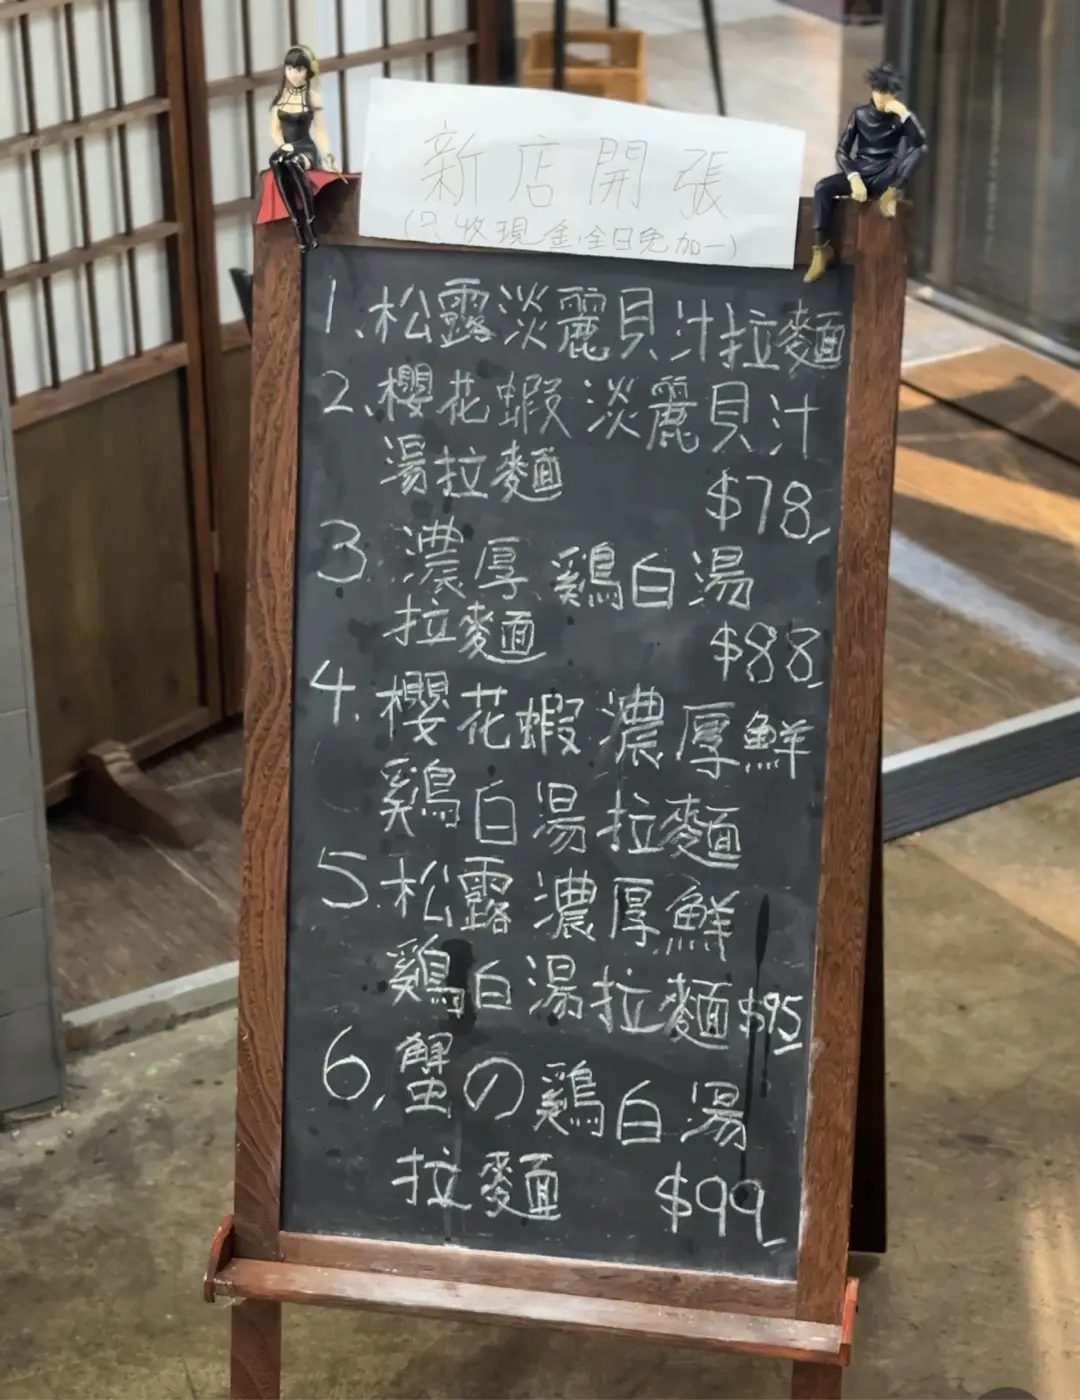 新店開張
(只收現金,全日免加一)
1、松露淡麗貝汁拉麵
2、櫻花蝦淡麗貝汁
湯拉麵 $78
3. 濃厚鷄白湯
拉麵 $88
4. 櫻花蝦濃厚鮮
鷄白湯拉麵
5. 松露濃厚鮮
鷄白湯拉麵 $95
6、蟹の鷄白湯
拉麵 $99